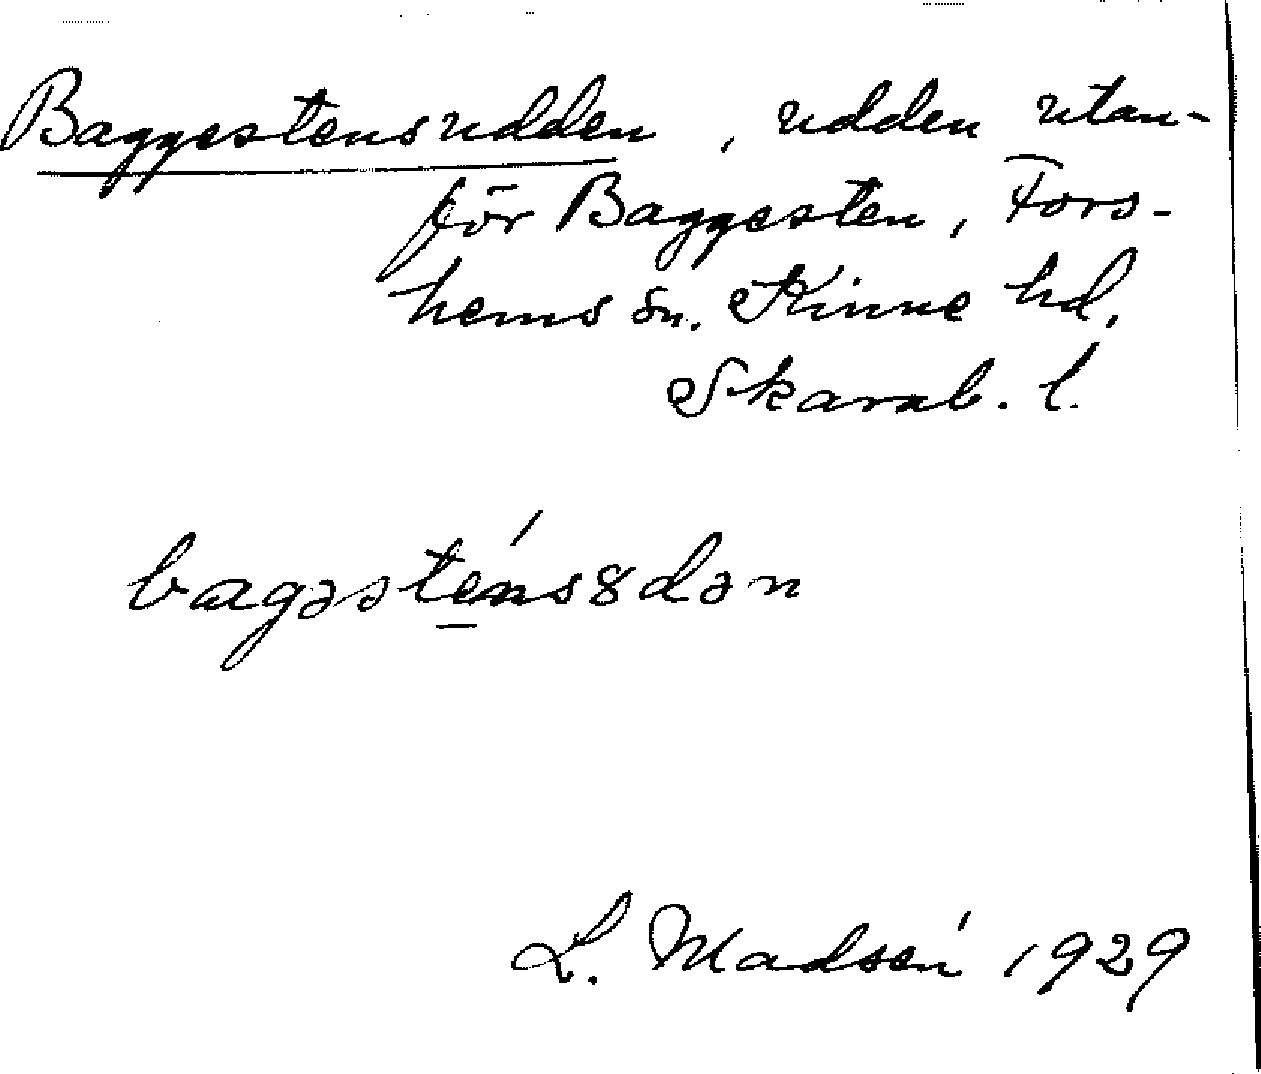 Baggestensudden, udden utan-
för Baggesten, Fors-
hems sn. Kinne hd,
Skarab. l.
bagəsténs8dən
L. Madsén 1929